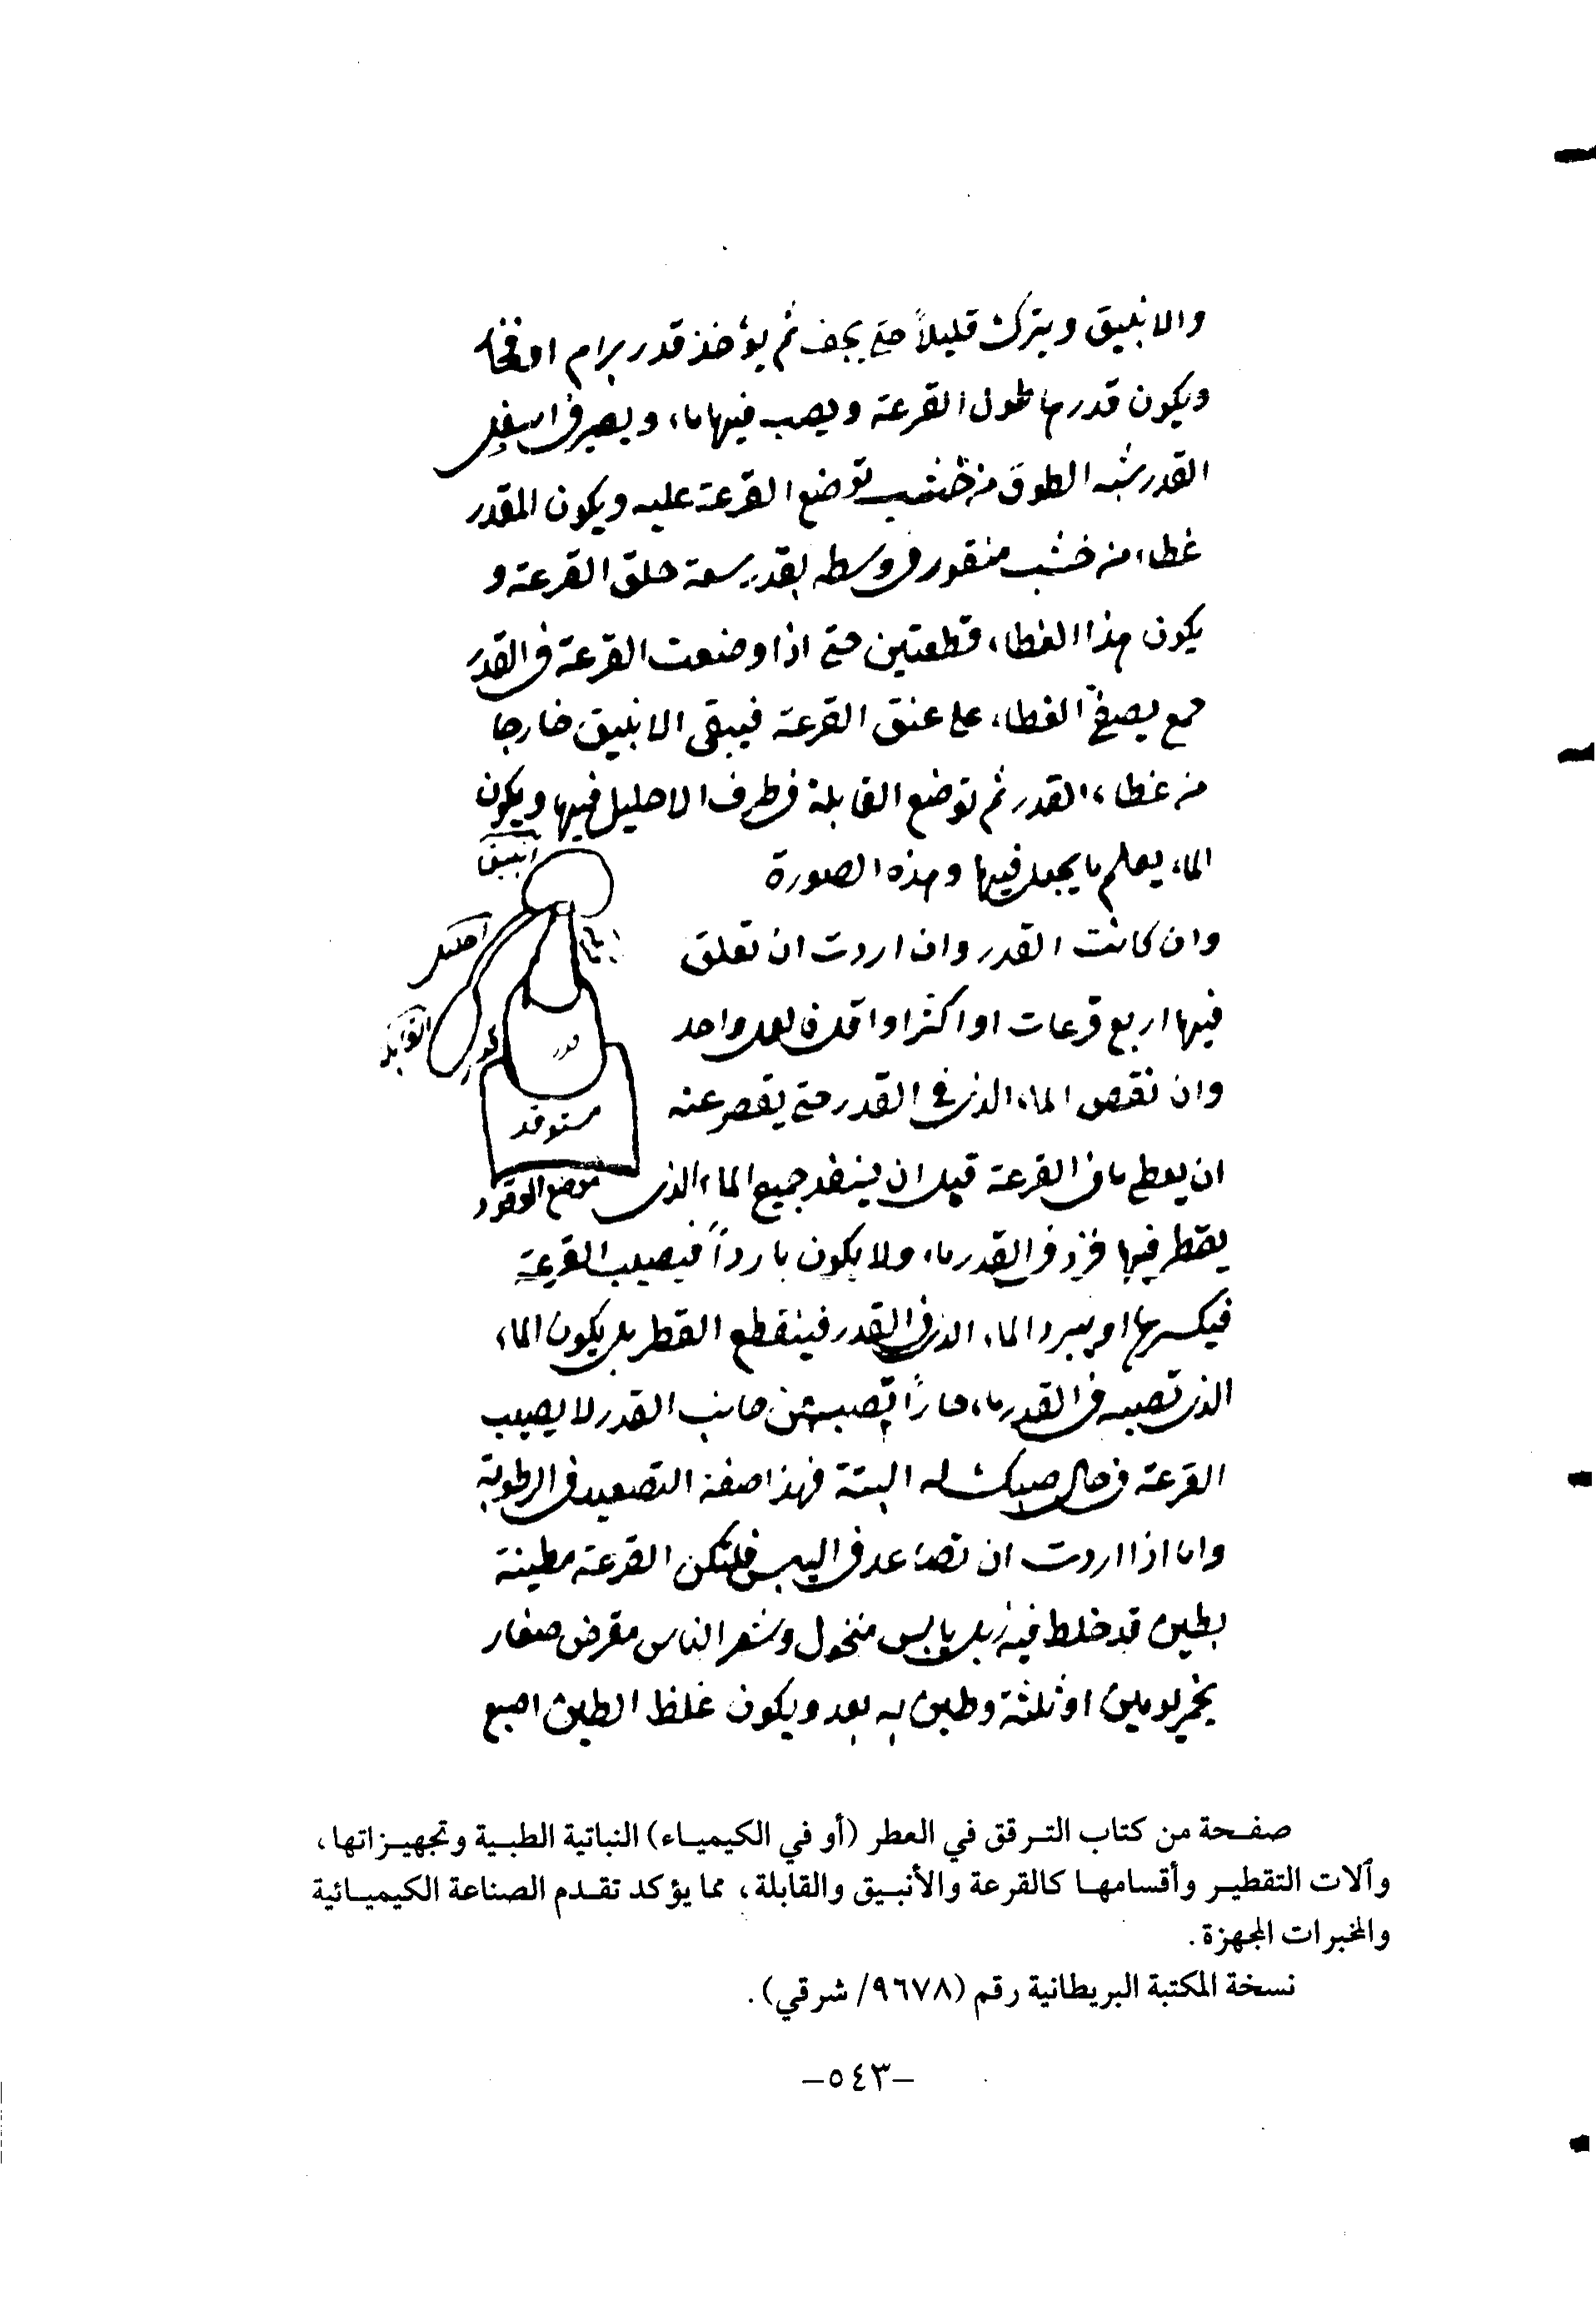 والانبيق ويترك قليلاً حتى يجف ثم يؤخذ قدر برام او فخار
ويكون قدرها طول القرعة ويصب فيها ماء ويصير في اسفل
القدر شبه الطوق من خشب توضع القرعة عليه ويكون للقدر
غطاء من خشب منقور في وسطه بقدر سعة حلق القرعة و
يكون هذا الغطاء قطعتين حتى اذا وضعت القرعة في القدر
جمع الغطاء على عنق القرعة فيبقى الانبيق خارجا
من غطاء القدر ثم توضع القابلة وطرف الاحليل فيها ويكون
الماء يعلم ما يجعل فيها وهذه الصورة
انبيق
احليل
القابلة
قدر
مستوقد
موضع الوقود
وان كانت القدر وان اردت ان تعلق
فيها اربع قرعات او اكثر او اقل بعد واحد
وان نقص الماء الذي في القدر حتى يقصر عنه
ان يعطى ما في القرعة قبل ان ينفد جميع الماء الذي
يقطر فيها فزد في القدر ماء ولا يكون بارداً فيصيب القرعة
فيكسرها او يبرد الماء الذي في القدر فينقطع القطر بل يكون الماء
الذي تصبه في القدر ماء حاراً تصبه من جانب القدر لا يصيب
القرعة في حال صبك له البتة فهذا صفة التصعيد في الرطوبة
واما اذا اردت ان تصاعد في اليبس فلتكن القرعة مطينة
بطين قد خلط فيه زبل يابس منخول وشعر الناس مقرض صغار
يخمر يومين او ثلثة وطين به بعد ويكون غلظ الطين اصبع
صفحة من كتاب الترقق في العطر (أو في الكيمياء) النباتية الطبية وتجهيزاتها،
وآلات التقطير وأقسامها كالقرعة والأنبيق والقابلة، مما يؤكد تقدم الصناعة الكيميائية
والمخبرات المجهزة.
نسخة المكتبة البريطانية رقم (٩٦٧٨/ شرقي).
–٥٤٣–